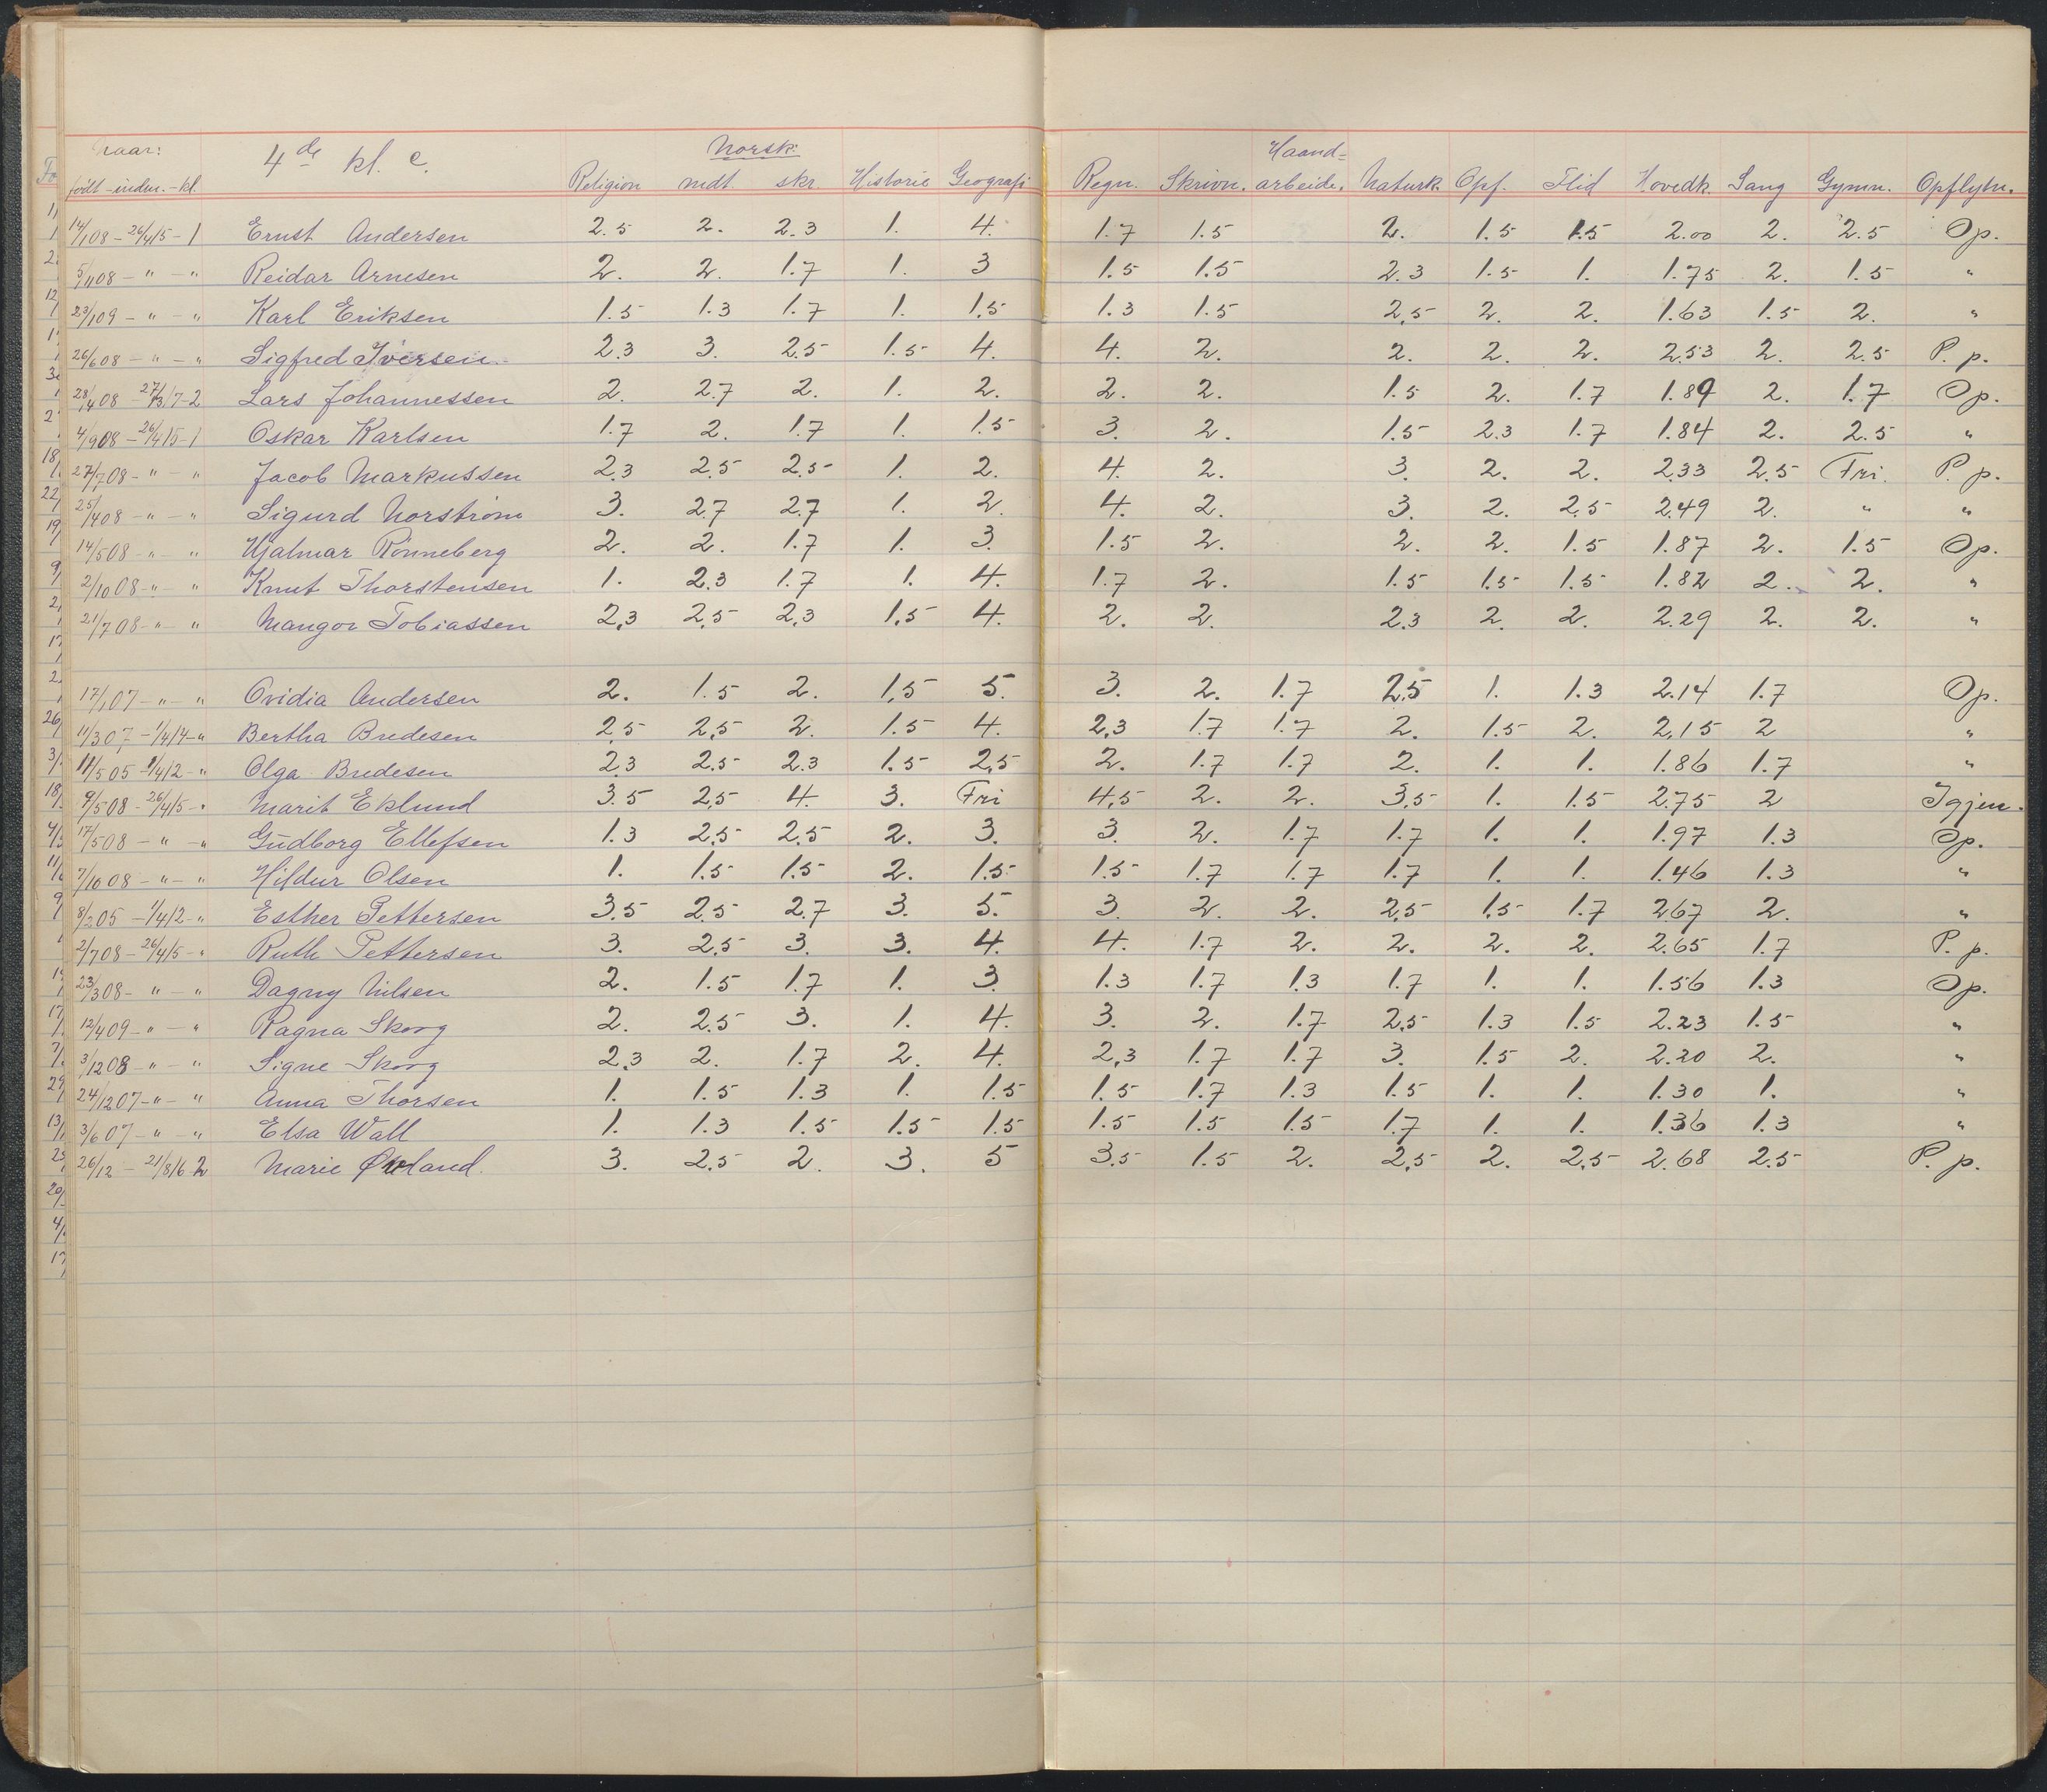 Naar: 4de kl. c. Norsk: Haand=
født - indm. - kl. Religion mdt. skr. Historie Geografi Regn. Skrivn. arbeide. Naturk. Opf. Flid Hovedk. Sang Gymn. Opflytn.
14/1 08 - 26/4 15 - 1 Ernst Andersen 2.5 2. 2.3 1. 4. 1.7 1.5 2. 1.5 1.5 2.00 2. 2.5 Op.
5/11 08 - " - " Reidar Arnesen 2. 2. 1.7 1. 3 1.5 1.5 2.3 1.5 1. 1.75 2. 1.5 "
23/1 09 - " - " Karl Eriksen 1.5 1.3 1.7 1. 1.5 1.3 1.5 2.5 2. 2. 1.63 1.5 2. "
26/6 08 - " - " Sigfred Iversen. 2.3 3. 2.5 1.5 4. 4. 2. 2. 2. 2. 2.53 2. 2.5 P. p.
28/4 08 - 27/3 17 - 2 Lars Johannessen 2. 2.7 2. 1. 2. 2. 2. 1.5 2. 1.7 1.89 2. 1.7 Op.
4/9 08 - 26/4 15 - 1 Oskar Karlsen 1.7 2. 1.7 1. 1.5 3. 2. 1.5 2.3 1.7 1.84 2. 2.5 "
27/7 08 - " - " Jacob Markussen 2.3 2.5 2.5 1. 2. 4. 2. 3. 2. 2. 2.33 2.5 Fri. P. p.
25/4 08 - " - " Sigurd Norstrøm 3. 2.7 2.7 1. 2. 4. 2. 3. 2. 2.5 2.49 2. " "
14/5 08 - " - " Hjalmar Rønneberg 2. 2. 1.7 1. 3. 1.5 2. 2. 2. 1.5 1.87 2. 1.5 Op.
2/10 08 - " - " Knut Thorstensen 1. 2.3 1.7 1. 4. 1.7 2. 1.5 1.5 1.5 1.82 2. 2. "
21/7 08 - " - " Mangor Tobiassen 2.3 2.5 2.3 1.5 4. 2. 2. 2.3 2. 2. 2.29 2. 2. "
17/1 07 - " - " Ovidia Andersen 2. 1.5 2. 1.5 5. 3. 2. 1.7 2.5 1. 1.3 2.14 1.7 Op.
11/3 07 - 1/4 14 - " Bertha Bredesen 2.5 2.5 2. 1.5 4. 2.3 1.7 1.7 2. 1.5 2. 2.15 2 "
11/5 05 - 1/4 12 - " Olga Bredesen 2.3 2.5 2.3 1.5 2.5 2. 1.7 1.7 2. 1. 1. 1.86 1.7 "
9/5 08 - 26/4 15 - " Marit Eklund 3.5 2.5 4. 3. Fri 4.5 2. 2. 3.5 1. 1.5 2.75 2 Igjen.
17/5 08 - " - " Gudborg Ellefsen 1.3 2.5 2.5 2. 3. 3. 2. 1.7 1.7 1. 1. 1.97 1.3 Op.
7/10 08 - " - " Hildur Olsen 1. 1.5 1.5 2. 1.5 1.5 1.7 1.7 1.7 1. 1. 1.46 1.3 "
8/2 05 - 1/4 12 - " Esther Pettersen 3.5 2.5 2.7 3. 5. 3. 2. 2. 2.5 1.5 1.7 2.67 2. "
2/7 08 - 26/4 15 - " Ruth Pettersen 3. 2.5 3. 3. 4. 4. 1.7 2. 2. 2. 2. 2.65 1.7 P. p.
23/3 08 - " - " Dagny Nilsen 2. 1.5 1.7 1. 3. 1.3 1.7 1.3 1.7 1. 1. 1.56 1.3 Op.
12/4 09 - " - " Ragna Skoog 2. 2.5 3. 1. 4. 3. 2. 1.7 2.5 1.3 1.5 2.23 1.5 "
3/12 08 - " - " Signe Skoog 2.3 2. 1.7 2. 4. 2.3 1.7 1.7 3. 1.5 2. 2.20 2. "
24/12 07 - " - " Anna Thorsen 1. 1.5 1.3 1. 1.5 1.5 1.7 1.3 1.5 1. 1. 1.30 1. "
3/6 07 - " - " Elsa Wall 1. 1.3 1.5 1.5 1.5 1.5 1.5 1.5 1.7 1. 1. 1.36 1.3 "
26/12 - 21/8 16 2 Marie Øvland. 3. 2.5 2. 3. 5 3.5 1.5 2. 2.5 2. 2.5 2.68 2.5 P. p.